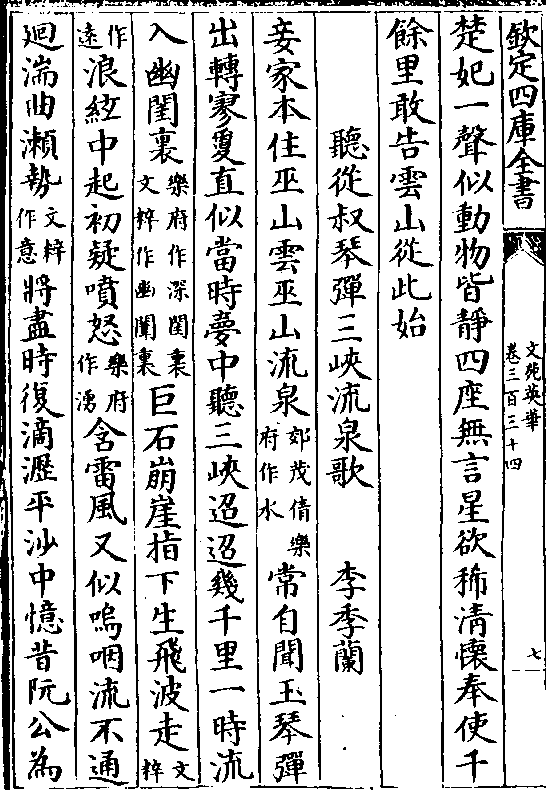 欽定四庫全書
文苑英華
卷三百三十四
七
楚妃一聲似動物皆靜四座無言星欲稀清懷奉使千
餘里敢告雲山從此始
聽從叔琴彈三峽流泉歌 李季蘭
妾家本住巫山雲巫山流泉郭茂倩樂府作水常自聞玉琴彈
出轉寥夐直似當時夢中聽三峽迢迢幾千里一時流
入幽閨裏樂府作深閨裏文粹作幽闈裏巨石崩崖指下生飛波走文粹
作遠浪絃中起初疑噴怒樂府作湧含雷風又似嗚咽流不通
迴湍曲瀨勢文粹作意將盡時復滴瀝平沙中憶昔阮公為